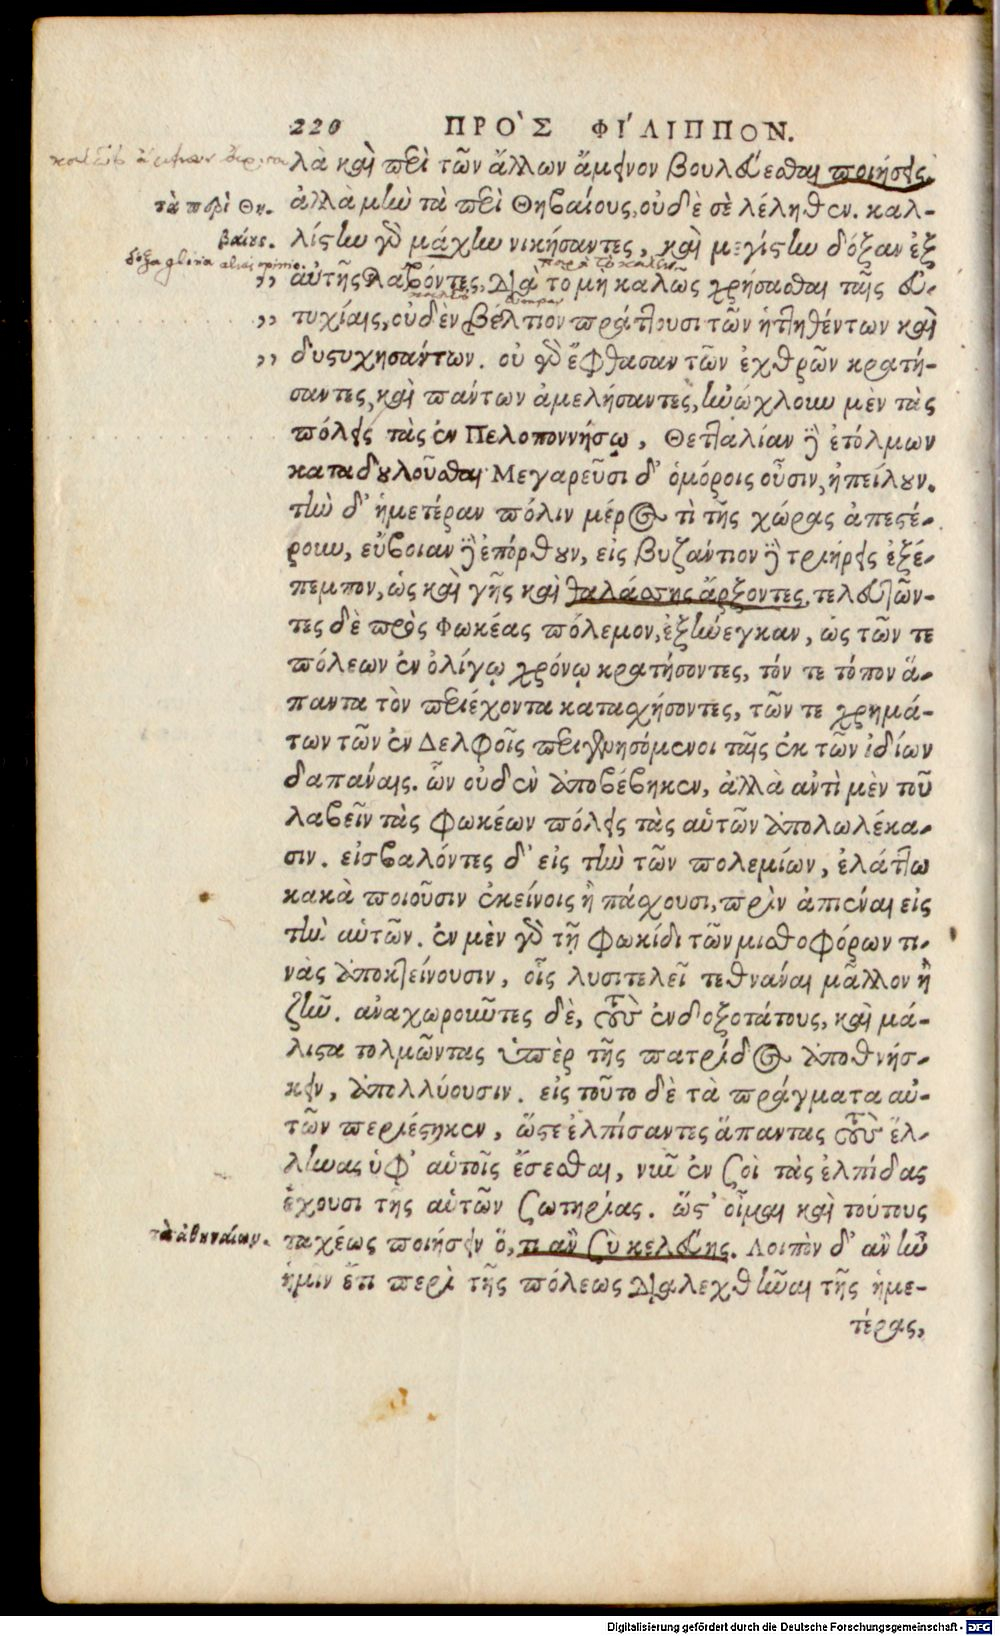 220 ΠΡΟῚΣ ΦΙ΄ΛΙΠΠΟΝ.
λὰ καὶ περὶ τῶν ἄλλων ἄμεινον βουλεύεσθαι ποιήσεις.
τὰ περὶ Θη-
βαίους.
ἀλλὰ μὴν τὰ περὶ Θηβαίους, οὐδὲ σὲ λέληθεν. καλ-
λίστην γὰρ μάχην νικήσαντες, καὶ μεγίστην δόξαν ἐξ
δόξα gloria alias opinio.
,, αὐτῆς λαβόντες, διὰ τὸ μὴ καλῶς χρήσασθαι ταῖς εὐ-
,, τυχίαις, οὐδὲν βέλτιον πράττουσι τῶν ἡττηθέντων καὶ
,, δυστυχησάντων. οὐ γὰρ ἔφθασαν τῶν ἐχθρῶν κρατή-
σαντες, καὶ πάντων ἀμελήσαντες, ἠνώχλουν μὲν τὰς
πόλεις τὰς ἐν Πελοποννήσῳ, Θετταλίαν δὲ ἐτόλμων
καταδουλοῦσθαι· Μεγαρεῦσι δ' ὁμόροις οὖσιν, ἠπείλουν.
τὴν δ' ἡμετέραν πόλιν μέρος τὶ τῆς χώρας ἀπεστέ-
ρουν, εὔβοιαν δὲ ἐπόρθουν, εἰς βυζάντιον δὲ τριήρεις ἐξέ-
πεμπον, ὡς καὶ γῆς καὶ θαλάσσης ἄρξοντες, τελευτῶν-
τες δὲ πρὸς Φωκέας πόλεμον, ἐξήνεγκαν, ὡς τῶν τε
πόλεων ἐν ὀλίγῳ χρόνῳ κρατήσοντες, τόν τε τόπον ἅ-
παντα τὸν περιέχοντα κατασχήσοντες, τῶν τε χρημά-
των τῶν ἐν Δελφοῖς περιγενησόμενοι ταῖς ἐκ τῶν ἰδίων
δαπάναις. ὧν οὐδὲν ἀποβέβηκεν, ἀλλὰ αντὶ μὲν τοῦ
λαβεῖν τὰς Φωκέων πόλεις τὰς αὑτῶν ἀπολωλέκα-
σιν. εἰσβαλόντες δ' εἰς τὴν τῶν πολεμίων, ἐλάττω
κακὰ ποιοῦσιν ἐκείνοις ἢ πάσχουσι, πρὶν ἀπιέναι εἰς
τὴν αὑτῶν. ἐν μὲν γὰρ τῇ Φωκίδι τῶν μισθοφόρων τι-
νὰς ἀποκτείνουσιν, οἷς λυσιτελεῖ τεθνάναι μᾶλλον ἢ
ζῆν. αναχωροῦντες δὲ, τοὺς ἐνδοξοτάτους, καὶ μά-
λιστα τολμῶντας ὑπὲρ τῆς πατρίδος ἀποθνήσ-
κειν, ἀπολλύουσιν. εἰς τοῦτο δὲ τὰ πράγματα αὐ-
τῶν περιέστηκεν, ὥστε ἐλπίσαντες ἅπαντας τοὺς ἕλ-
ληνας ὑφ' αὑτοῖς ἔσεσθαι, νῦν ἐν σοὶ τὰς ἐλπίδας
ἔχουσι τῆς αὑτῶν σωτηρίας. ὥστ' οἶμαι καὶ τούτους
τὰ ἀθηναίων.
ταχέως ποιήσειν ὅ, τι ἂν σὺ κελεύῃς. Λοιπὸν δ' ἂν ἦν
ἡμῖν ἔτι περὶ τῆς πόλεως διαλεχθῆναι τῆς ἡμε-
τέρας,
Digitalisierung gefördert durch die Deutsche Forschungsgemeinschaft - DFG